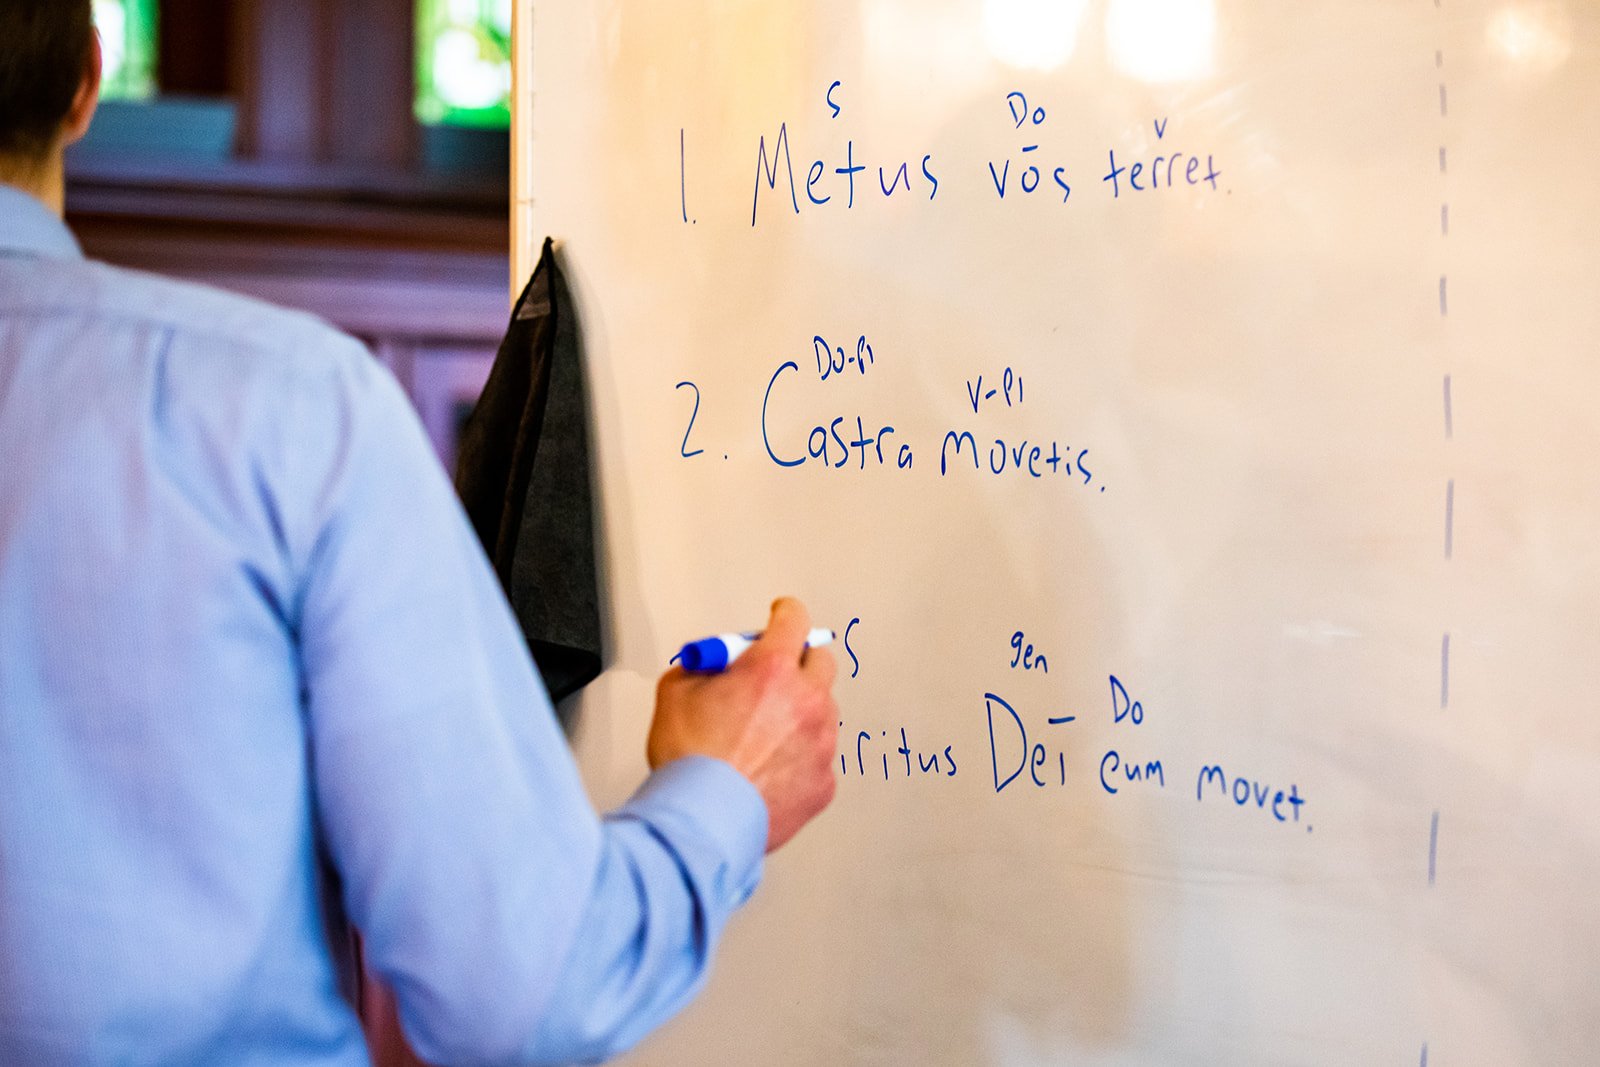 S Do V
1. Metus vōs terret.
Do-Pl V-Pl
2. Castra movetis.
S gen Do
iritus Deī eum movet.